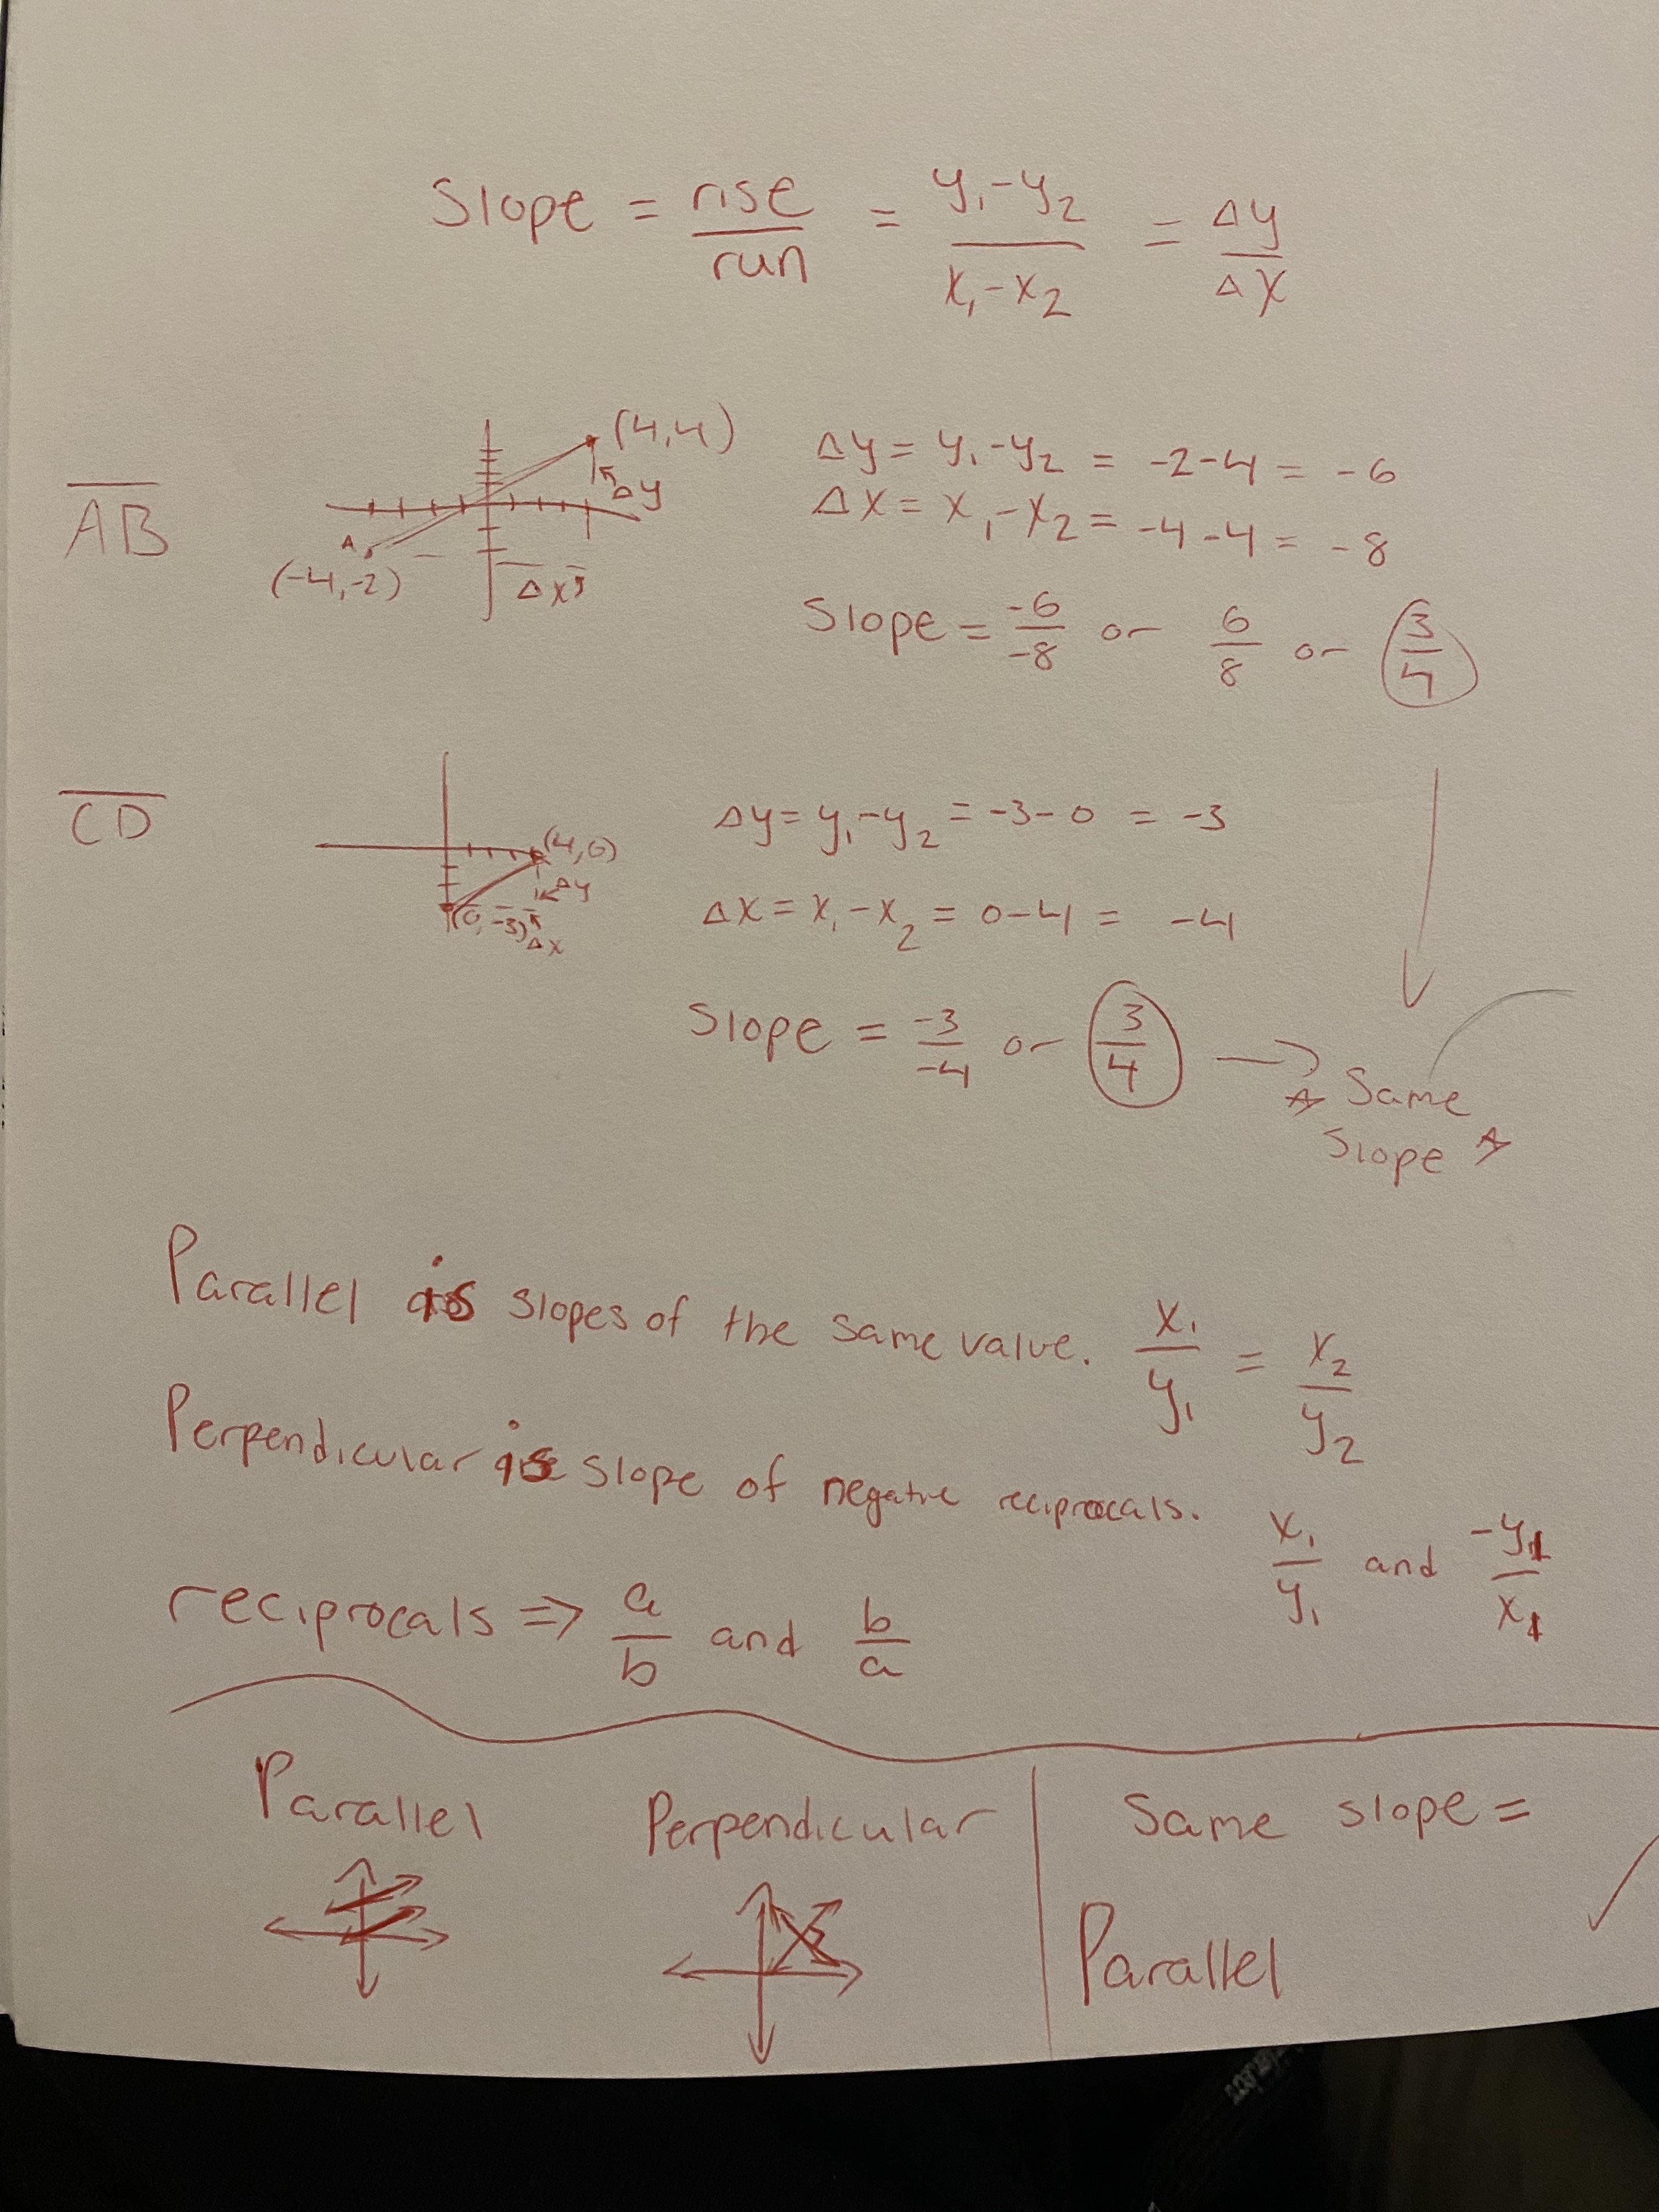 Slope = rise/run = y₁-y₂/x₁-x₂ = Δy/Δx
AB
(4,4)
Δy
A
(-4,-2)
Δx
Δy = y₁-y₂ = -2-4 = -6
Δx = x₁-x₂ = -4-4 = -8
Slope = -6/-8 or 6/8 or 3/4
CD
(4,0)
Δy
(0,-3)
Δx
Δy = y₁-y₂ = -3-0 = -3
Δx = x₁-x₂ = 0-4 = -4
Slope = -3/-4 or 3/4 → ☆ Same
Slope ☆
Parallel is slopes of the same value. x₁/y₁ = x₂/y₂
Perpendicular is slope of negative reciprocals. x₁/y₁ and -y₁/x₁
reciprocals => a/b and b/a
Parallel
Perpendicular
Same slope =
Parallel